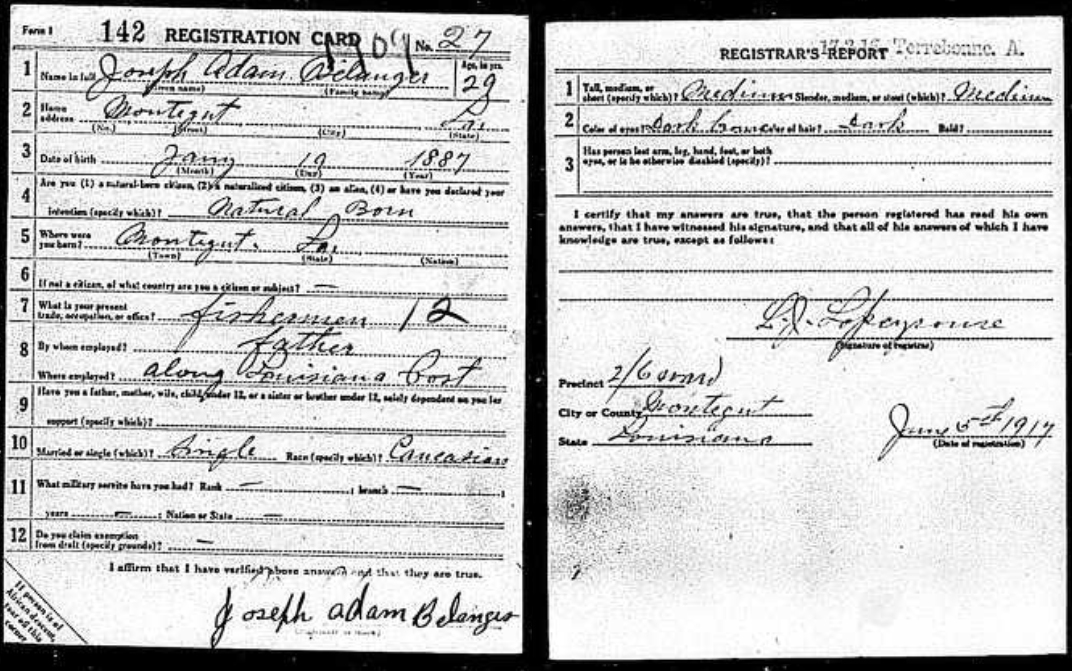 Form 1 142 REGISTRATION CARD No. 27
1909
1 Name in full Joseph Adam Belanger Age, in yrs. 29
(Given name) (Family name)
2 Home address Montegut La.
(No.) (Street) (City) (State)
3 Date of birth Jany 19 1887
(Month) (Day) (Year)
4 Are you (1) a natural-born citizen, (2) a naturalized citizen, (3) an alien, (4) or have you declared your
intention (specify which)? Natural Born
5 Where were you born? Montegut. La.
(Town) (State) (Nation)
6 If not a citizen, of what country are you a citizen or subject? —
7 What is your present trade, occupation, or office? fishermen 12
8 By whom employed? father
Where employed? along Louisiana Cost
9 Have you a father, mother, wife, child under 12, or a sister or brother under 12, solely dependent on you for
support (specify which)?
10 Married or single (which)? Single Race (specify which)? Caucasian
11 What military service have you had? Rank — ; branch — ;
years — ; Nation or State —
12 Do you claim exemption from draft (specify grounds)? —
I affirm that I have verified above answers and that they are true.
Joseph adam Belanger
If person is of
African descent,
tear off this
corner
17-2-16 Terrebonne, A.
REGISTRAR'S REPORT
1 Tall, medium, or short (specify which)? Medium Slender, medium, or stout (which)? Medium
2 Color of eyes? Dark brown Color of hair? Dark Bald?
3 Has person lost arm, leg, hand, foot, or both
eyes, or is he otherwise disabled (specify)?
I certify that my answers are true, that the person registered has read his own
answers, that I have witnessed his signature, and that all of his answers of which I have
knowledge are true, except as follows:
L. J. Lapeyrouse
(Signature of registrar)
Precinct 2/6 ward
City or County Montegut
State Louisiana
June 5th 1917
(Date of registration)